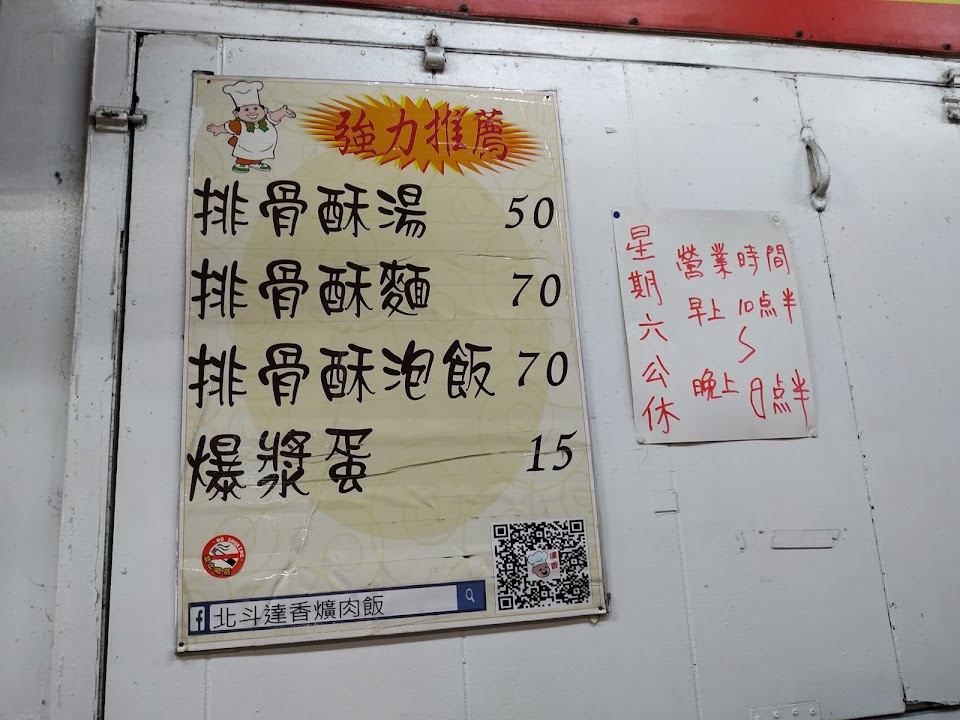 強力推薦
排骨酥湯 50
排骨酥麵 70
排骨酥泡飯 70
爆漿蛋 15
NO SMOKING
北斗達香爌肉飯
星期六公休
營業時間
早上 10点半
~
晚上 8点半